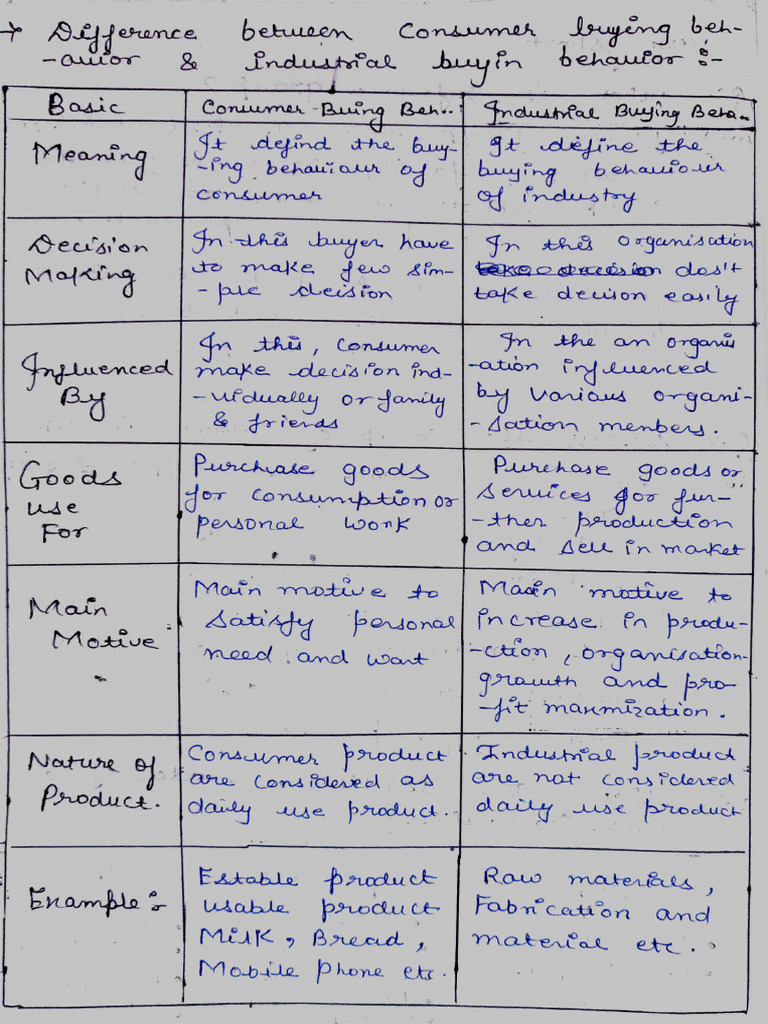 → Difference between Consumer buying beh-
-avior & industrial buyin behavior :-
Basic
Consumer Buing Beh..
Industrial Buying Beha..
Meaning
It defind the buy-
-ing behaviour of
consumer
It define the
buying behaviour
of industry
Decision
Making
In this buyer have
to make few sim-
-ple deision
In this organisation
dos't
take decison easily
Influenced
By
In this, consumer
make decision ind-
-uidually or family
& friends
In the an organis
-ation influenced
by various organi-
-sation menbers.
Goods
use
For
Purchase goods
for consumption or
personal work
Purchase goods or
services for fur-
-ther production
and sell in market
Main
Motive
Main motive to
satisfy personal
need and want
Main motive to
increase in produ-
-ction, organisation
growth and pro-
-fit maxmization.
Nature of
Product.
Consumer product
are considered as
daily use product.
Industrial product
are not considered
daily use product
Example :-
Estable product
usable product
Milk, Bread,
Mobile phone etc.
Raw materials,
Fabrication and
material etc.